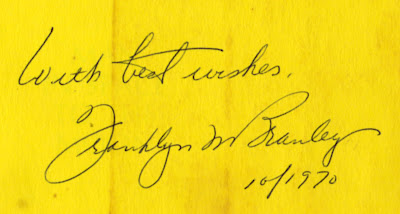 With best wishes.
Franklyn M Branley
10/1970